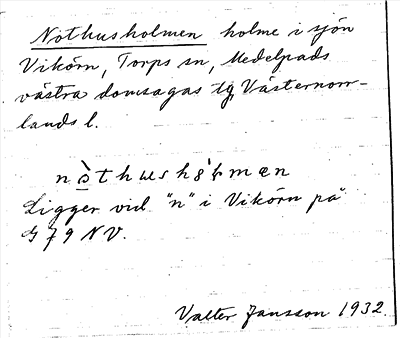 Nothusholmen holme i sjön
Vikörn, Torps sn, Medelpads
västra domsagas tg, Västernorr-
lands l.
nɔ̀thushɵ̀ɽmæn
Ligger vid "n" i Vikörn på
J 79 NV.
Valter Jansson 1932.